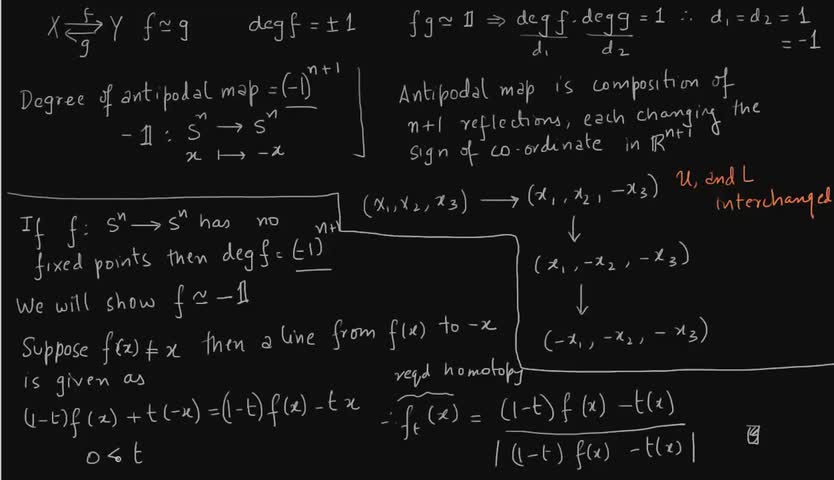 X ⇄ Y f ≃ g deg f = ±1
f
g
fg ≃ 𝟙 ⇒ deg f · deg g = 1 ∴ d₁ = d₂ = 1
d₁ d₂ = -1
Degree of antipodal map = (-1)ⁿ⁺¹
-𝟙 : Sⁿ → Sⁿ
x ↦ -x
Antipodal map is composition of
n+1 reflections, each changing the
sign of co-ordinate in ℝⁿ⁺¹
(x₁, x₂, x₃) → (x₁, x₂, -x₃)
U, and L
interchanged
↓
(x₁, -x₂, -x₃)
↓
(-x₁, -x₂, -x₃)
If f: Sⁿ → Sⁿ has no
fixed points then deg f = (-1)ⁿ⁺¹
We will show f ≃ -𝟙
Suppose f(x) ≠ x then a line from f(x) to -x
is given as
(1-t)f(x) + t(-x) = (1-t)f(x) - tx
0 < t
reqd homotopy
∴ fₜ(x) = (1-t) f(x) - t(x)
| (1-t) f(x) - t(x) |